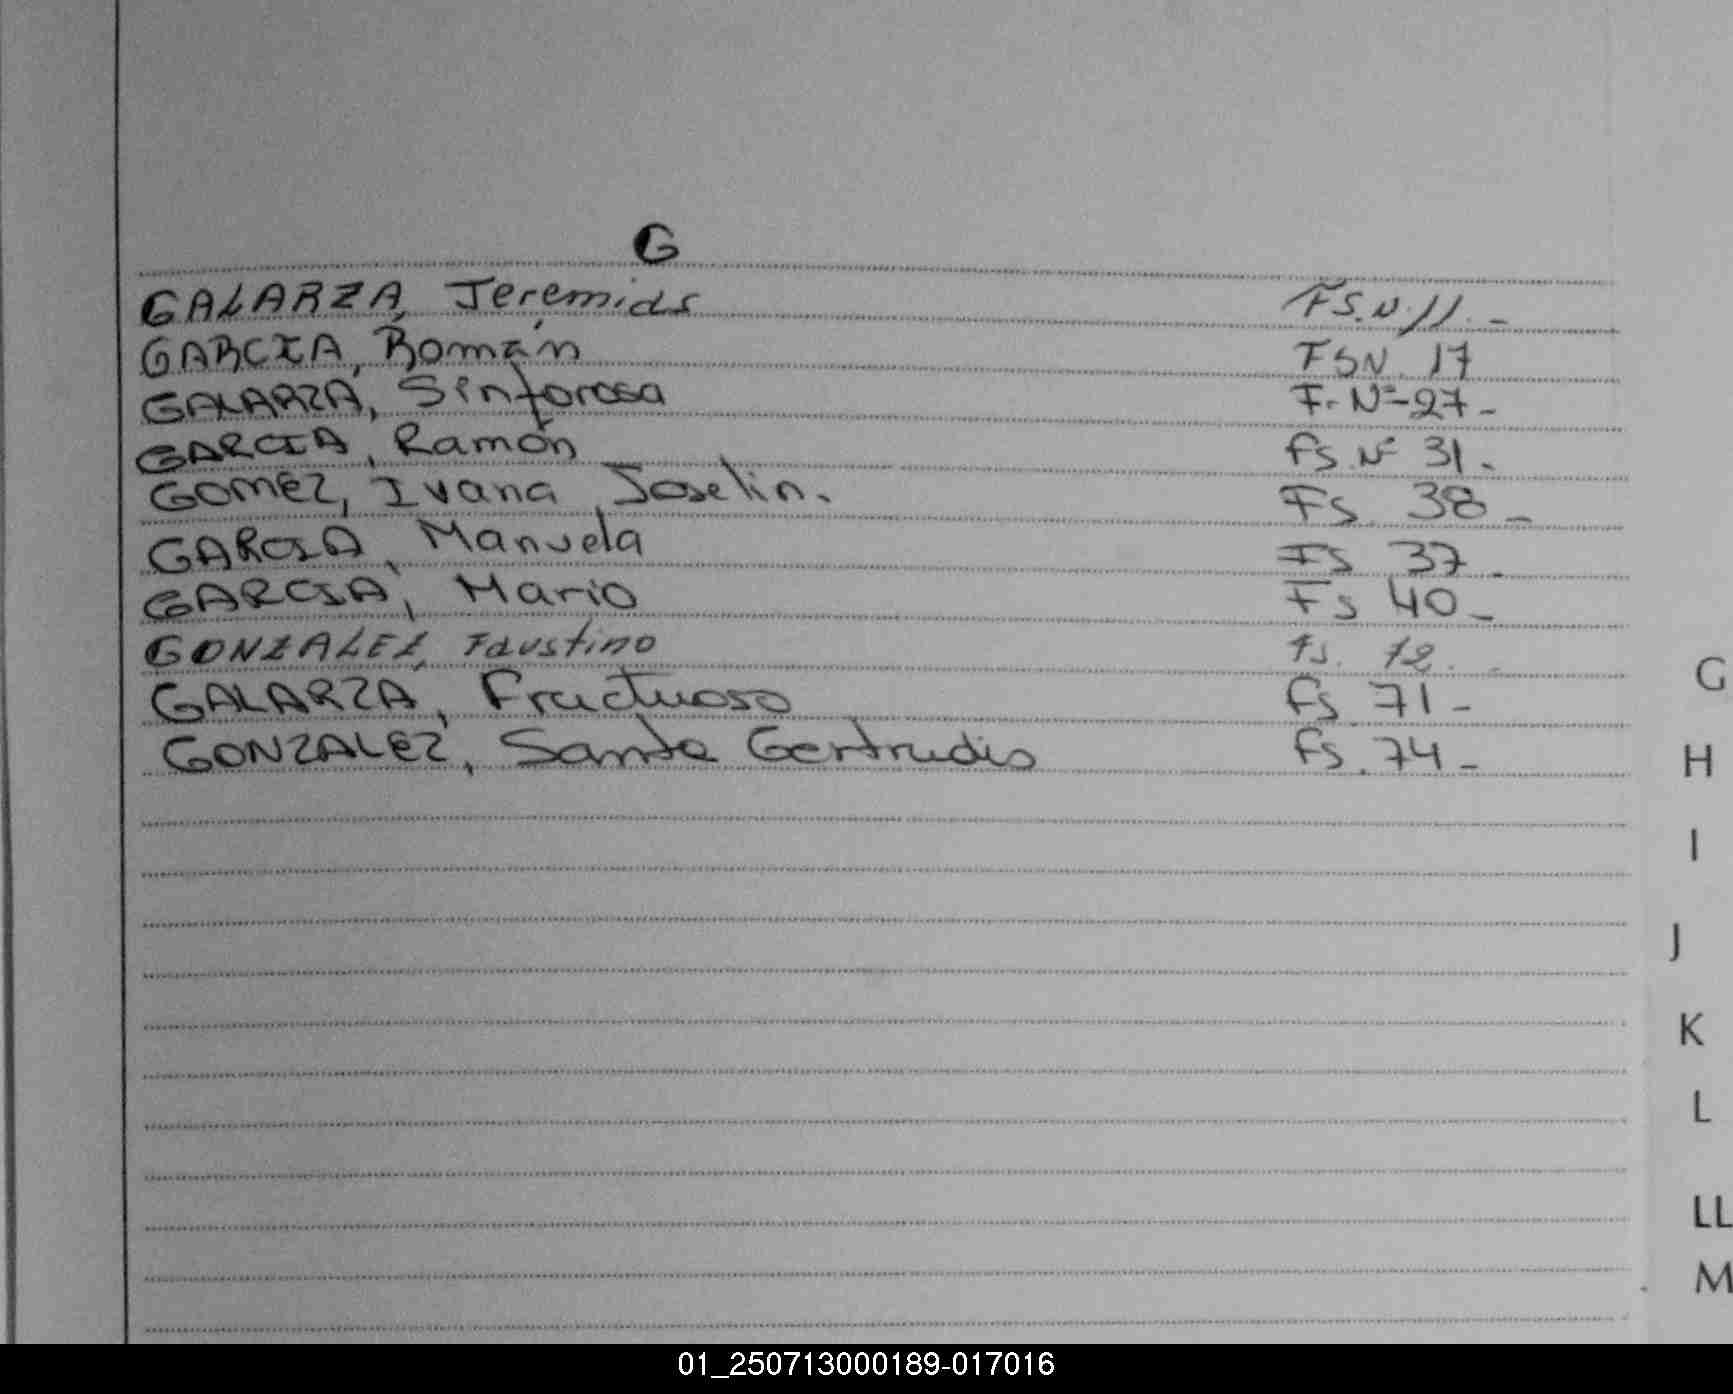 G
GALARZA, Jeremias FS.N.11.-
GARCIA, Román FSN. 17
GALARZA, Sinforosa F. Nº-27-
GARCIA, Ramón fS.Nº 31.
GOMEZ, Ivana Joselin. Fs. 38-
GARCIA, Manuela FS 37.
GARCIA, Mario Fs 40-
GONZALEZ, Faustino fs.
G
GALARZA, Fructuoso fs 71-
GONZALEZ, Santa Gertrudis fs. 74-
H
I
J
K
L
LL
M
01_250713000189-017016